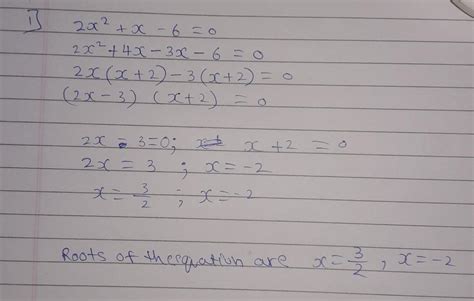 1)
2x² + x - 6 = 0
2x² + 4x - 3x - 6 = 0
2x(x+2) - 3(x+2) = 0
(2x-3) (x+2) = 0
2x - 3 = 0; x + 2 = 0
2x = 3 ; x = -2
x = 3/2 ; x = -2
Roots of the equation are x = 3/2 , x = -2